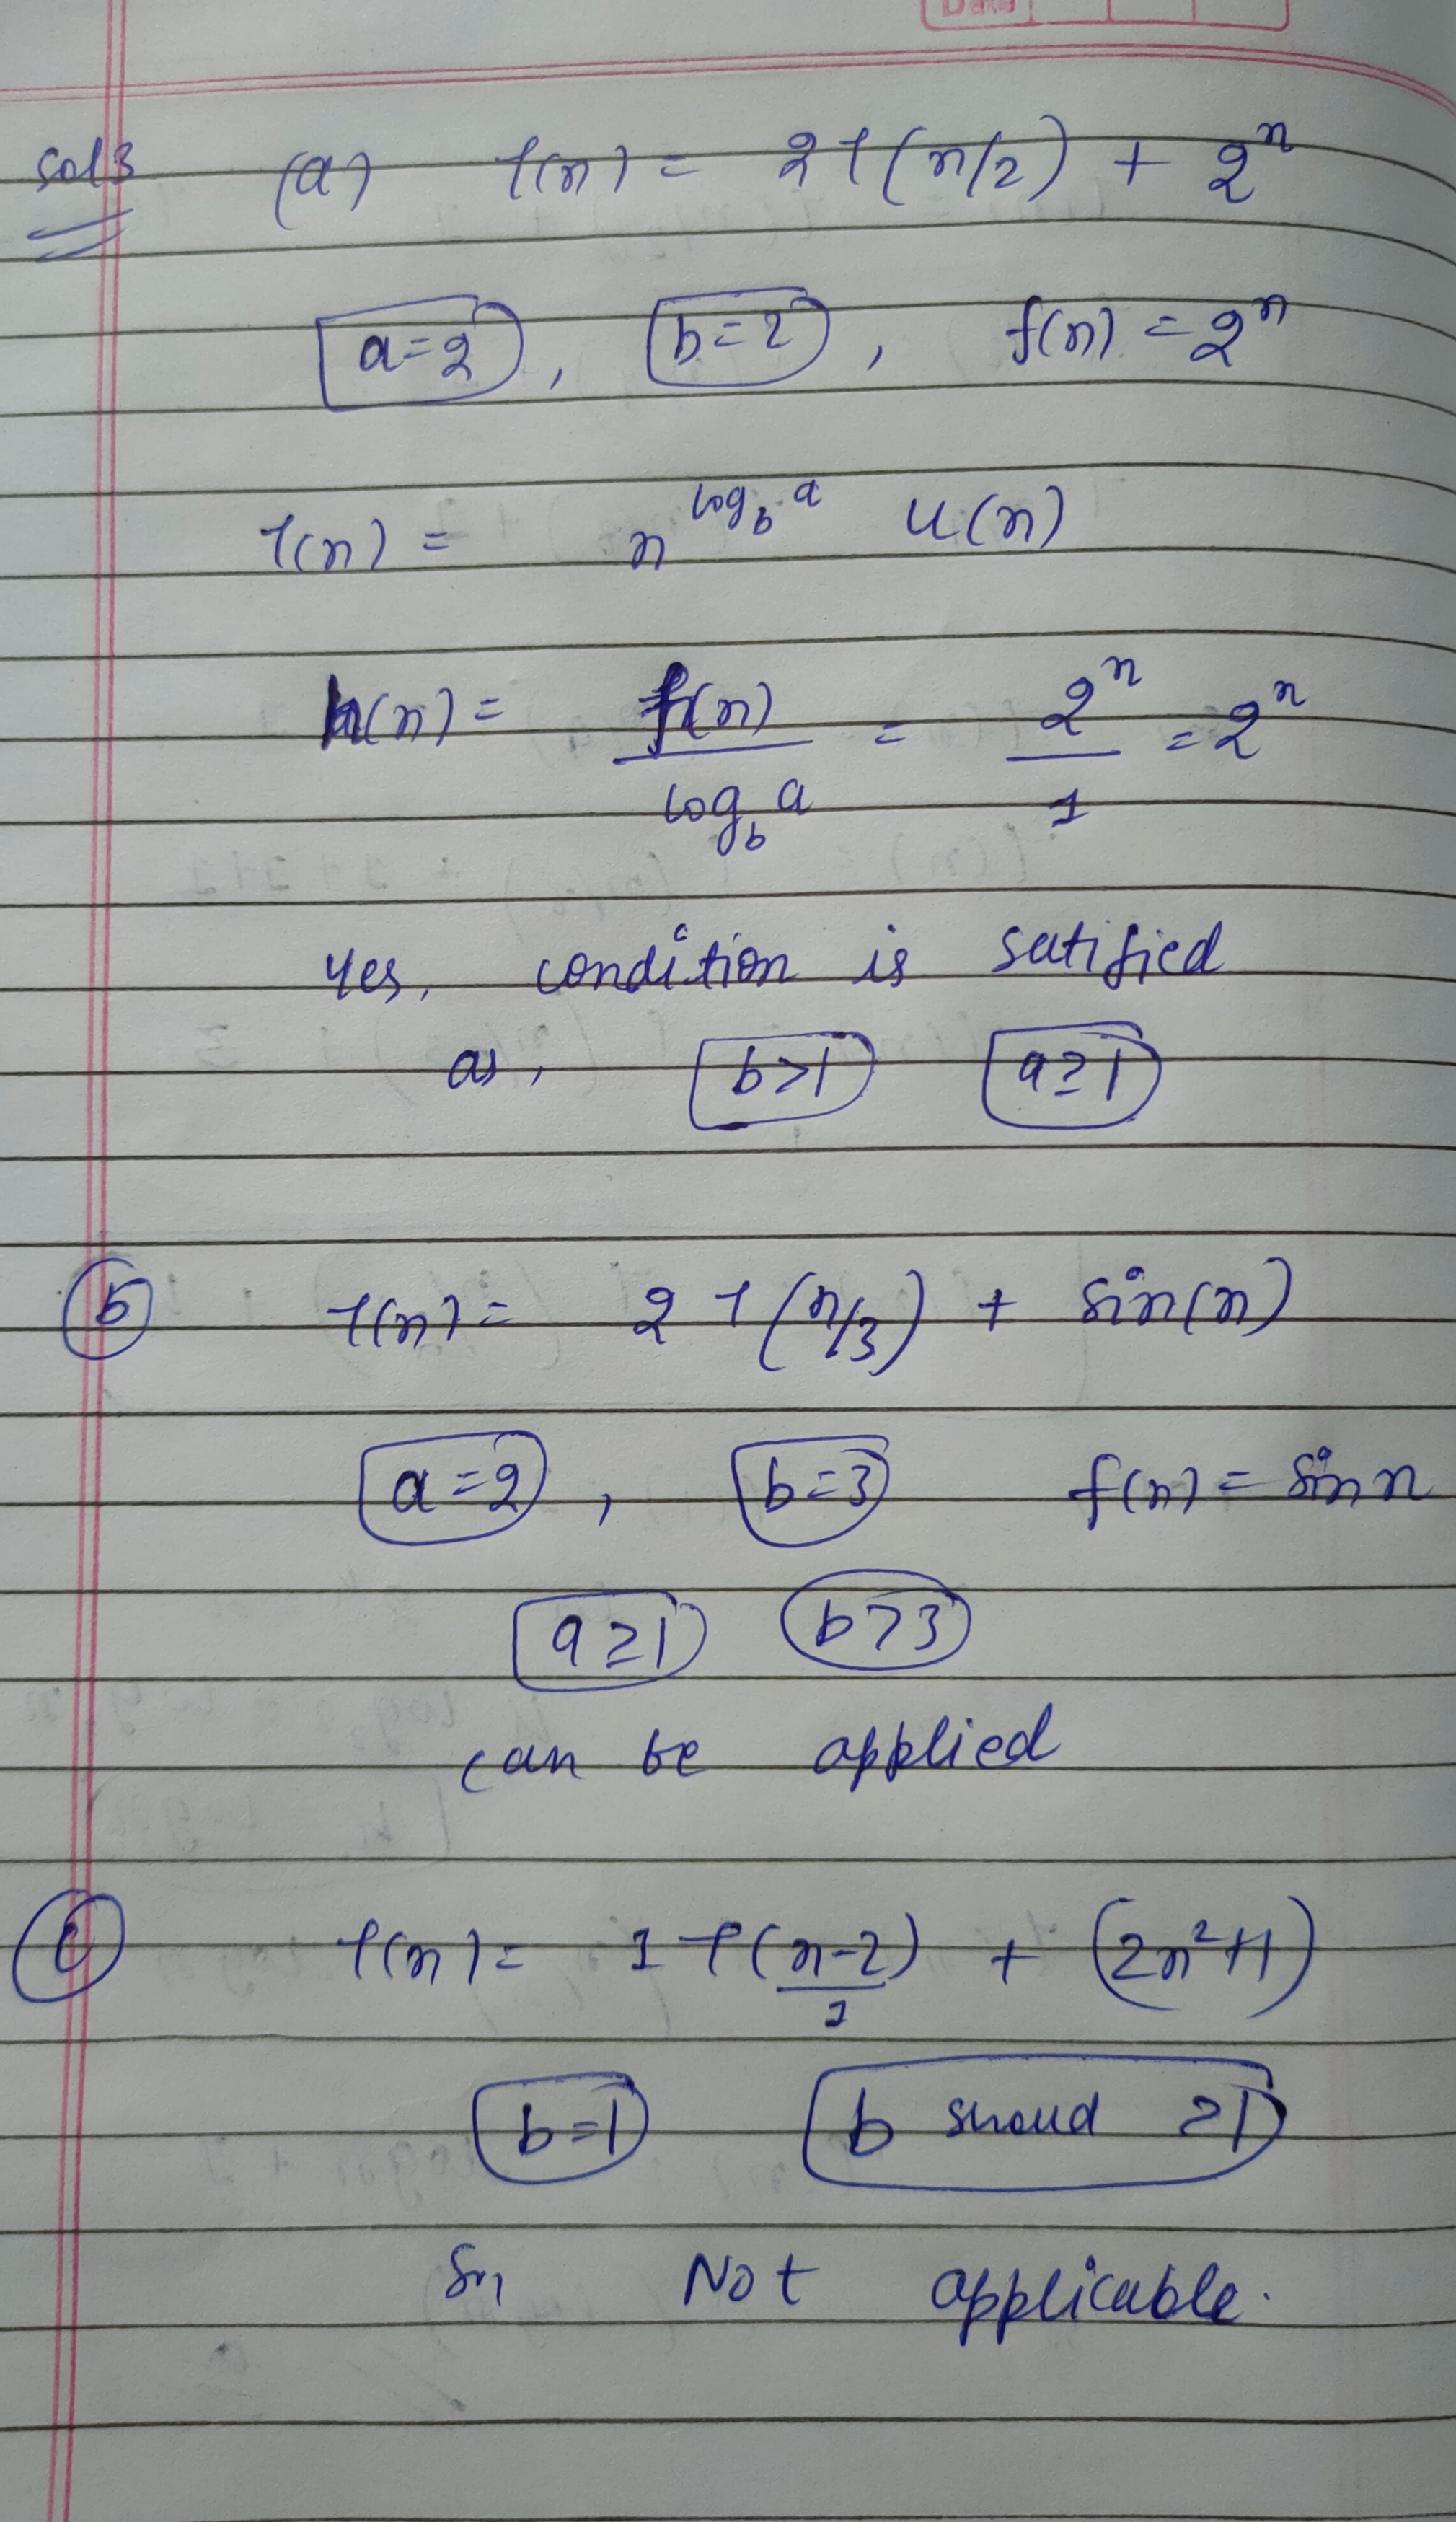 Sol 3 (a) T(n) = 2T(n/2) + 2^n
a=2, b=2, f(n) = 2^n
T(n) = n^{log_b a} U(n)
h(n) = f(n)/log_b a = 2^n/1 = 2^n
Yes, condition is satified
as, b>1 a≥1
(b) T(n) = 2T(n/3) + sin(n)
a=2, b=3 f(n) = sin n
a≥1 b>3
can be applied
(c) T(n) = 1T((n-2)/1) + (2n²+1)
b=1 b shoud >1
So, Not applicable.